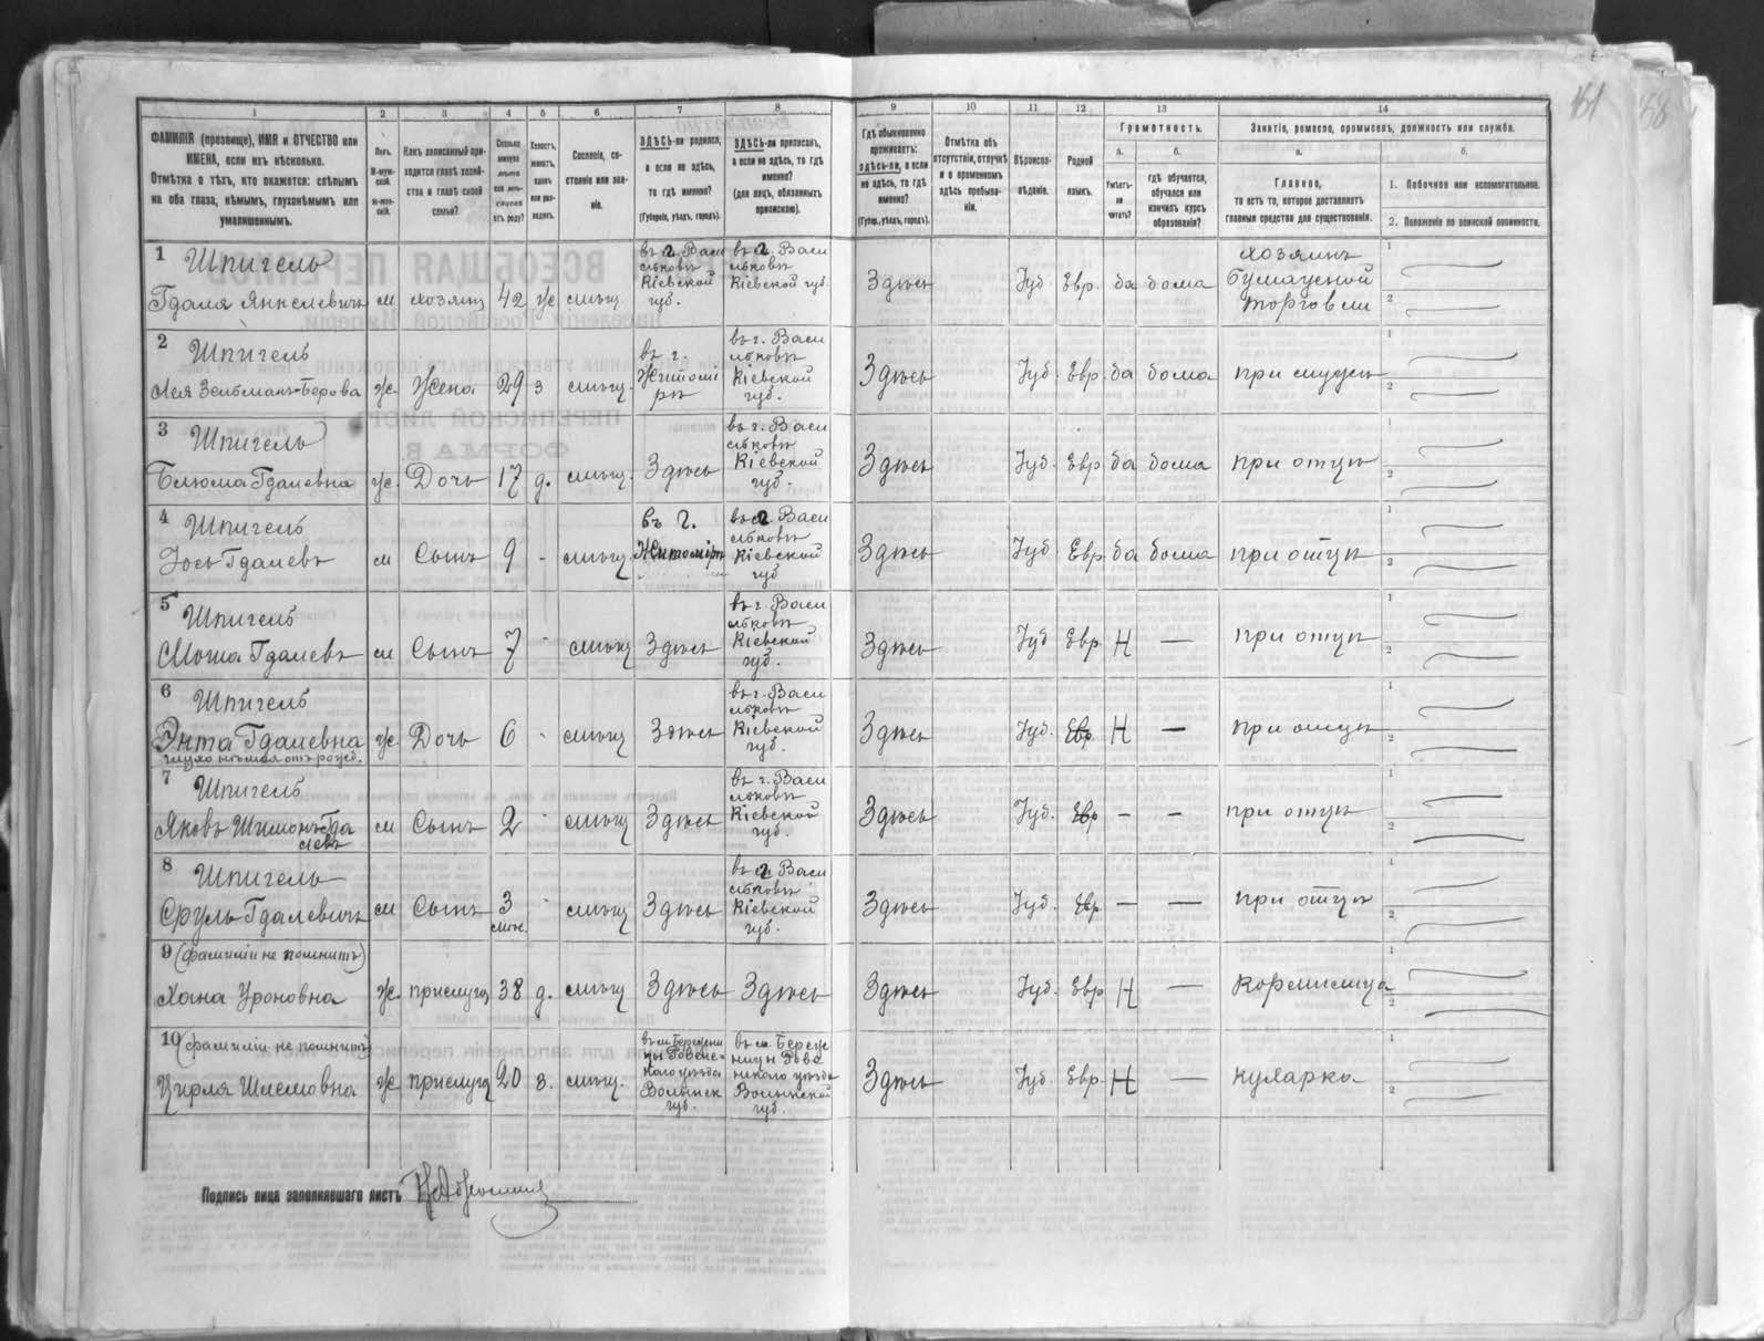 151
58
1 2 3 4 5 6 7 8 9 10 11 12 13 14
ФАМИЛІЯ (прозвище), ИМЯ и ОТЧЕСТВО или ИМЕНА, если ихъ нѣсколько.
Отмѣтка о тѣхъ, кто окажется: слѣпымъ на оба глаза, нѣмымъ, глухонѣмымъ или умалишеннымъ.
Полъ.
М-муж-ской.
Ж-жен-скій.
Какъ записанный при-ходится главѣ хозяй-ства и главѣ своей семьи?
Сколько минуло лѣтъ или мѣ-сяцевъ отъ роду?
Холостъ, женатъ, вдовъ или раз-веденъ.
Сословіе, со-стояніе или зва-ніе.
ЗДѢСЬ-ли родился, а если не здѣсь, то гдѣ именно?
(Губернія, уѣздъ, городъ).
ЗДѢСЬ-ли приписанъ, а если не здѣсь, то гдѣ именно?
(для лицъ, обязанныхъ припискою).
Гдѣ обыкновенно проживаетъ: здѣсь-ли, а если не здѣсь, то гдѣ именно?
(Губер., уѣздъ, городъ).
Отмѣтка объ отсутствіи, отлучкѣ и о временномъ здѣсь пребыва-ніи.
Вѣроиспо-вѣданіе.
Родной языкъ.
Грамотность.
а.
Умѣетъ-ли читать?
б.
гдѣ обучается, обучался или кончилъ курсъ образованія?
Занятіе, ремесло, промыселъ, должность или служба.
а.
Главное,
то есть то, которое доставляетъ главныя средства для существованія.
б.
1. Побочное или вспомогательное.
2. Положеніе по воинской повинности.
1 Шпигель
Гдаля Янкелевичъ м хозяинъ 42 ж мѣщ. въ г. Васильковѣ Кіевской губ. въ г. Васильковѣ Кіевской губ. Здѣсь Іуд. Евр. да дома хозяинъ бумажной торговли 1 2
2 Шпигель
Лея Зельманъ-Берова ж. Жена 29 з мѣщ. въ г. Житомірѣ въ г. Васильковѣ Кіевской губ. Здѣсь Іуд. Евр. да дома при мужѣ 1 2
3 Шпигель
Блюма Гдалевна ж. Дочь 17 д. мѣщ. Здѣсь въ г. Васильковѣ Кіевской губ. Здѣсь Іуд. Евр да дома при отцѣ 1 2
4 Шпигель
Іось Гдалевъ м Сынъ 9 - мѣщ. въ г. Житомірѣ въ г. Васильковѣ Кіевской губ Здѣсь Іуд Евр да дома при отцѣ 1 2
5 Шпигель
Моша Гдалевъ м Сынъ 7 - мѣщ Здѣсь въ г. Васильковѣ Кіевской губ. Здѣсь Іуд Евр Н — при отцѣ 1 2
6 Шпигель
Энта Гдалевна ж Дочь 6 - мѣщ Здѣсь въ г. Васильковѣ Кіевской губ. Здѣсь Іуд. Евр Н — при отцѣ 1 2
глухо нѣмая отъ рожд.
7 Шпигель
Яковъ Шимонъ Гдалевъ м Сынъ 2 - мѣщ Здѣсь въ г. Васильковѣ Кіевской губ. Здѣсь Іуд. Евр — — при отцѣ 1 2
8 Шпигель
Сруль Гдалевичъ м Сынъ 3 мѣс. - мѣщ Здѣсь въ г. Васильковѣ Кіевской губ. Здѣсь Іуд. Евр — — при отцѣ 1 2
9 (фамиліи не помнитъ)
Хана Уроновна ж. прислуга 38 д. мѣщ Здѣсь Здѣсь Здѣсь Іуд. Евр Н — Кормилица 1 2
10 (фамиліи не помнитъ)
Цирля Шлемовна ж прислуга 20 з. мѣщ. Волынск губ. Волынской губ. Здѣсь Іуд. Евр. Н — кухарка 1 2
Подпись лица заполнявшаго листъ